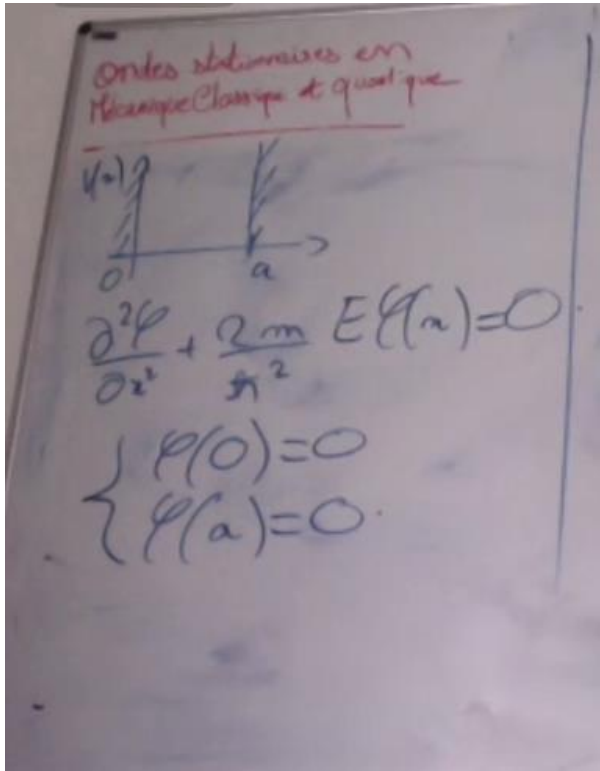 Ondes stationnaires en
Mécanique Classique et quantique
V(x)
0 a
∂²φ/∂x² + 2m/ħ² Eφ(x)=0.
{ φ(0)=0
φ(a)=0.